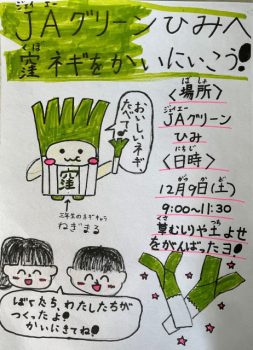 ジェイエー
JAグリーンひみへ
くぼ
窪ネギをかいにいこう!
おいしいネギ
たべて!
窪
ねぎまる
ばしょ
<場所>
ジェイエー
JAグリーン
ひみ
にちじ
<日時>
12月9日(土)
9:00~11:30
くさ つち
草むしりや土よせ
をがんばったヨ!
ぼくたち、わたしたちが
つくったよ!
かいにきてね!